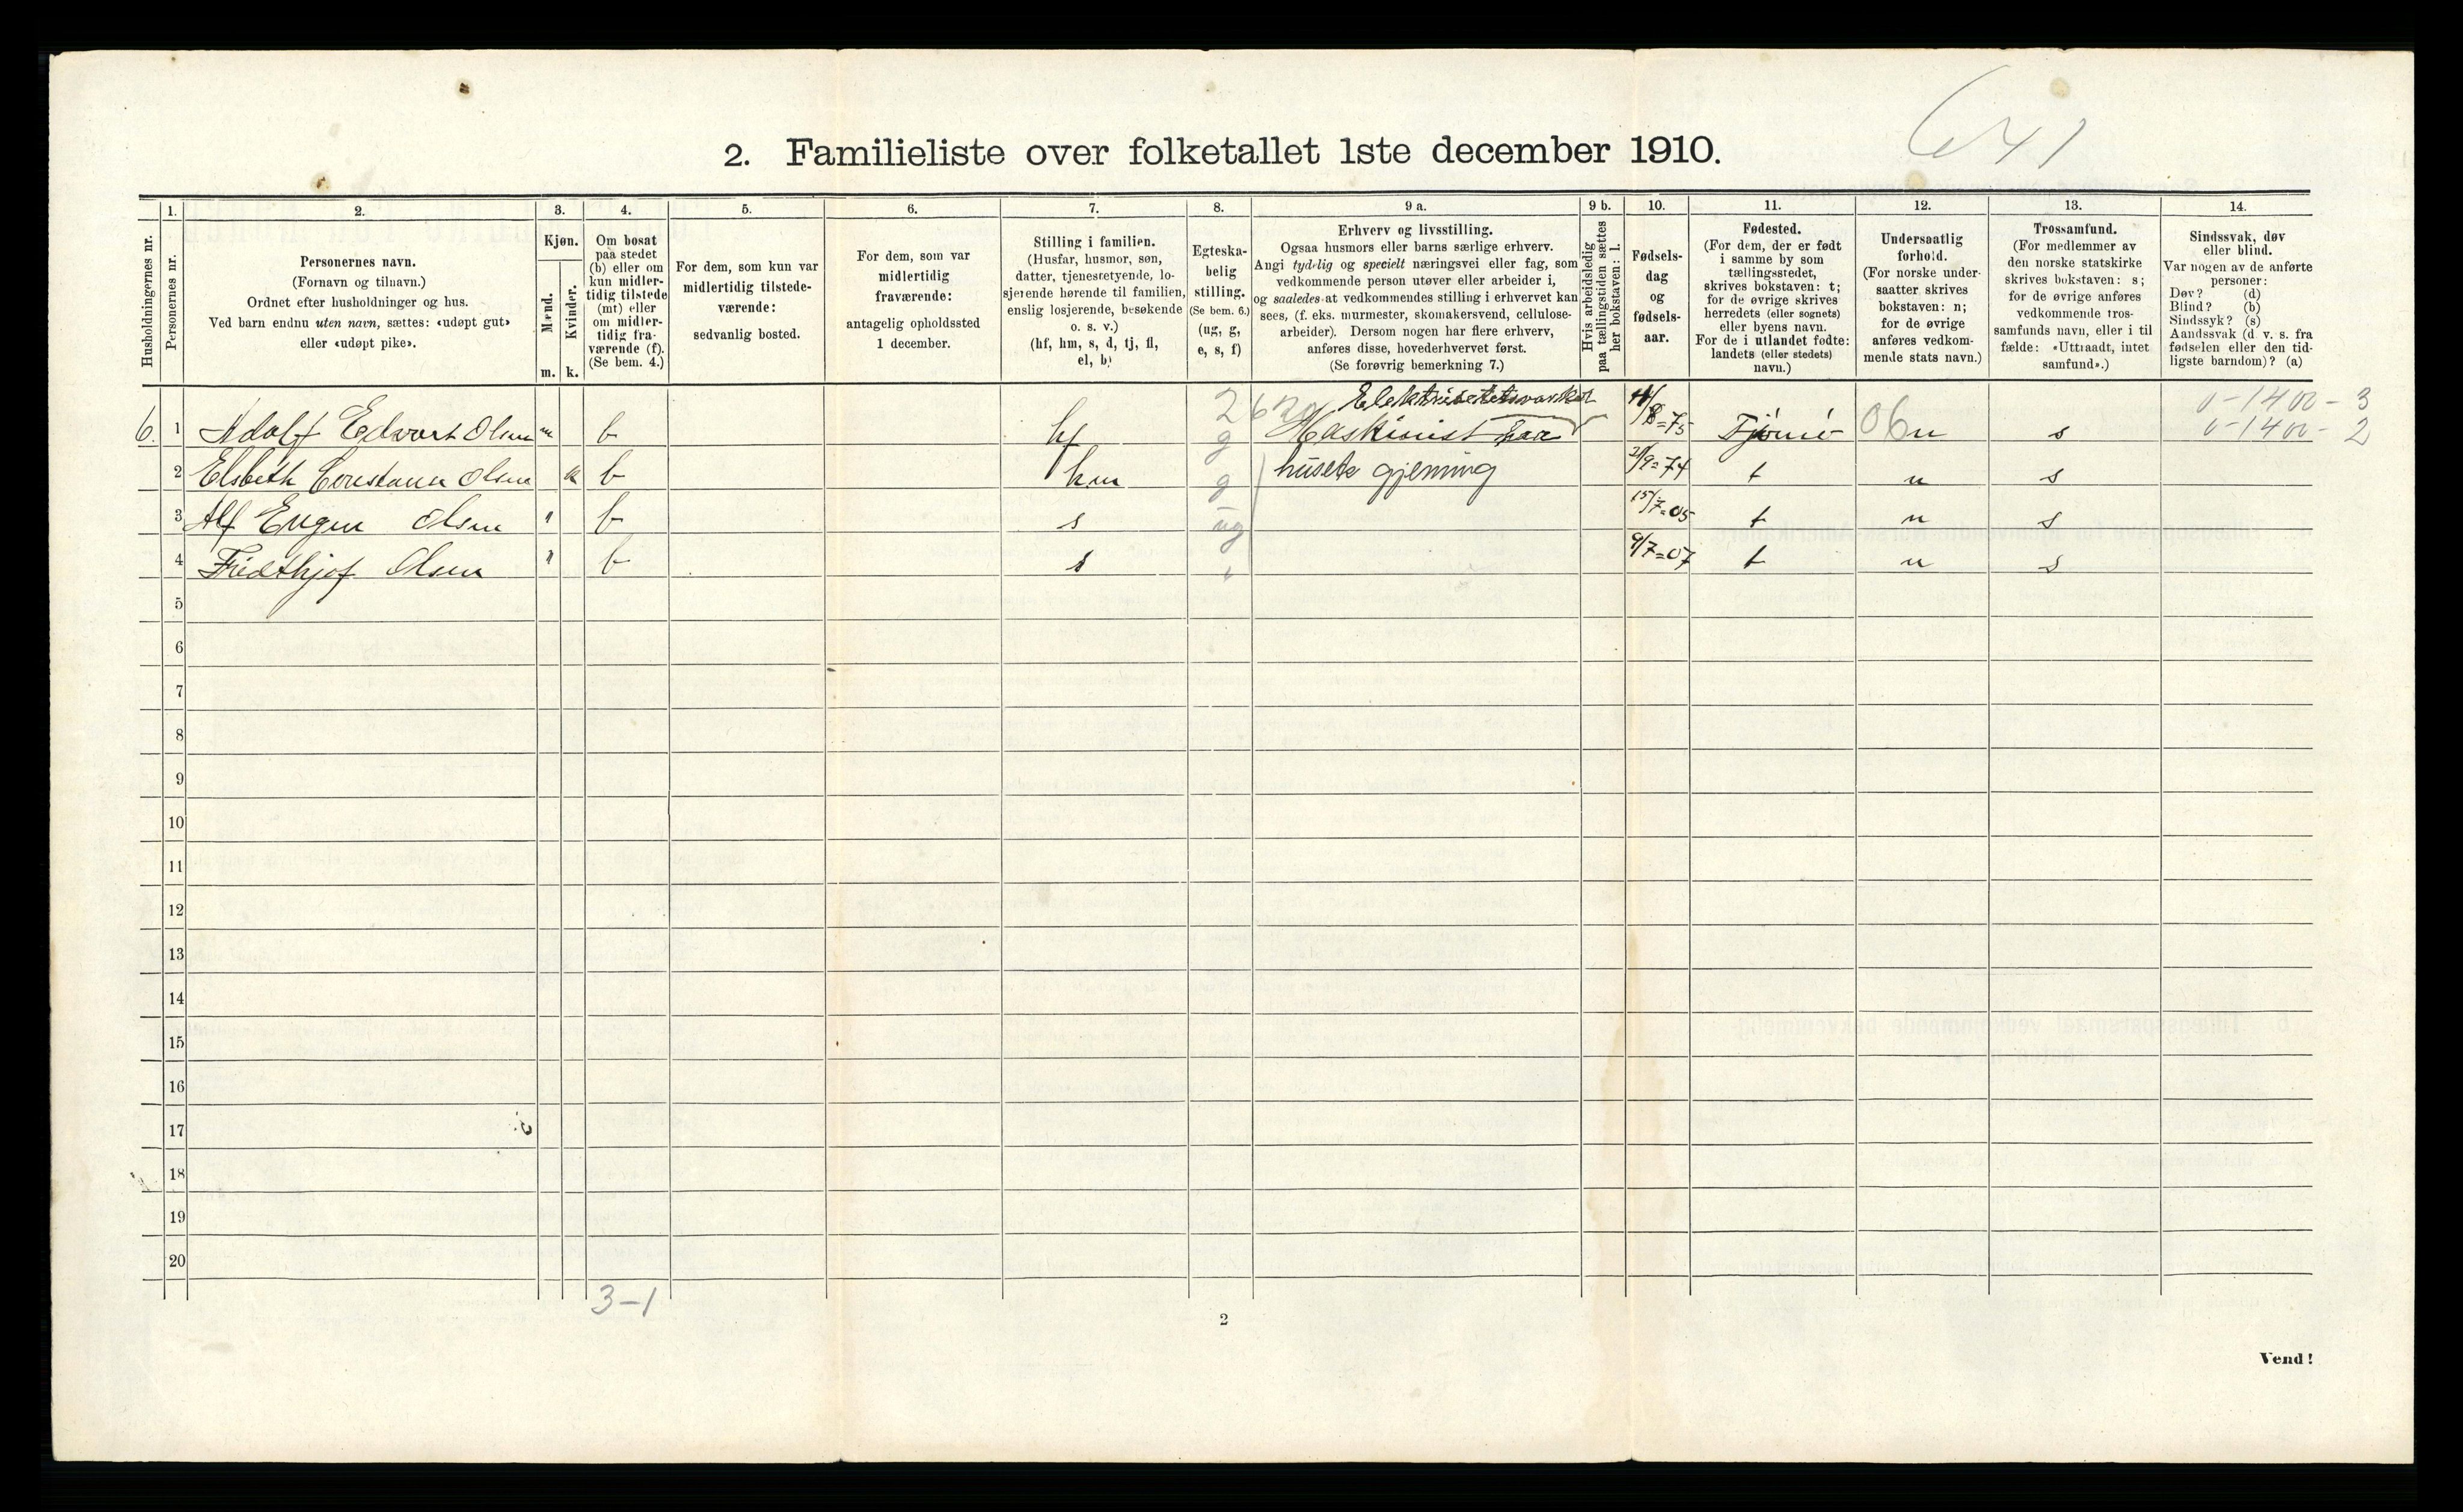 641
2. Familieliste over folketallet 1ste december 1910.
Husholdningernes nr.
1.
Personernes nr.
2.
Personernes navn.
(Fornavn og tilnavn.)
Ordnet efter husholdninger og hus.
Ved barn endnu uten navn, sættes: «udøpt gut»
eller «udøpt pike».
3.
Kjøn.
Mænd.
Kvinder.
m. k.
4.
Om bosat
paa stedet
(b) eller om
kun midler-
tidig tilstede
(mt) eller
om midler-
tidig fra-
værende (f).
(Se bem. 4.)
5.
For dem, som kun var
midlertidig tilstede-
værende:
sedvanlig bosted.
6.
For dem, som var
midlertidig
fraværende:
antagelig opholdssted
1 december.
7.
Stilling i familien.
(Husfar, husmor, søn,
datter, tjenestetyende, lo-
sjerende hørende til familien,
enslig losjerende, besøkende
o. s. v.)
(hf, hm, s, d, tj, fl,
el, b)
8.
Egteska-
belig
stilling.
(Se bem. 6.)
(ug, g,
e, s, f)
9 a.
Erhverv og livsstilling.
Ogsaa husmors eller barns særlige erhverv.
Angi tydelig og specielt næringsvei eller fag, som
vedkommende person utøver eller arbeider i,
og saaledes at vedkommendes stilling i erhvervet kan
sees, (f. eks. murmester, skomakersvend, cellulose-
arbeider). Dersom nogen har flere erhverv,
anføres disse, hovederhvervet først.
(Se forøvrig bemerkning 7.)
9 b.
Hvis arbeidsledig
paa tællingstiden sættes
her bokstaven: l.
10.
Fødsels-
dag
og
fødsels-
aar.
11.
Fødested.
(For dem, der er født
i samme by som
tællingsstedet,
skrives bokstaven: t;
for de øvrige skrives
herredets (eller sognets)
eller byens navn.
For de i utlandet fødte:
landets (eller stedets)
navn.)
12.
Undersaatlig
forhold.
(For norske under-
saatter skrives
bokstaven: n;
for de øvrige
anføres vedkom-
mende stats navn.)
13.
Trossamfund.
(For medlemmer av
den norske statskirke
skrives bokstaven: s;
for de øvrige anføres
vedkommende tros-
samfunds navn, eller i til
fælde: «Uttraadt, intet
samfund».)
14.
Sindssvak, døv
eller blind.
Var nogen av de anførte
personer:
Døv? (d)
Blind? (b)
Sindssyk? (s)
Aandssvak (d. v. s. fra
fødselen eller den tid-
ligste barndom)? (a)
Elektrisitetsværket 0-1400-3
6. 1 Adolf Edvart Olsen m b hf g Maskinist paa 8=75 Tjømø 06 n s 0-1400-2
2 Elsbeth Constanse Olsen k b hm g husets gjerning 2/9=74 t n s
3 Alf Eugen Olsen " b s ug 15/7=05 t n s
4 Fridthjof Olsen " b s " 9/7=07 t n s
5
6
7
8
9
10
11
12
13
14
15
16
17
18
19
20
3-1
2
Vend!